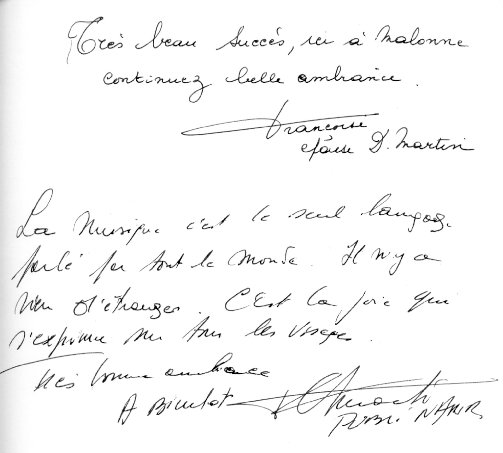 Très beau succés, ici à Malonne
continuez belle ambiance.
Francoise
épouse D. Martin
La Musique c'est le seul langage
parlé par tout le monde. Il n'y a
rien d'étranger. C'Est la joie qui
s'exprime sur tous les visages.
très bonne ambiance
A Bientot
NAMUR